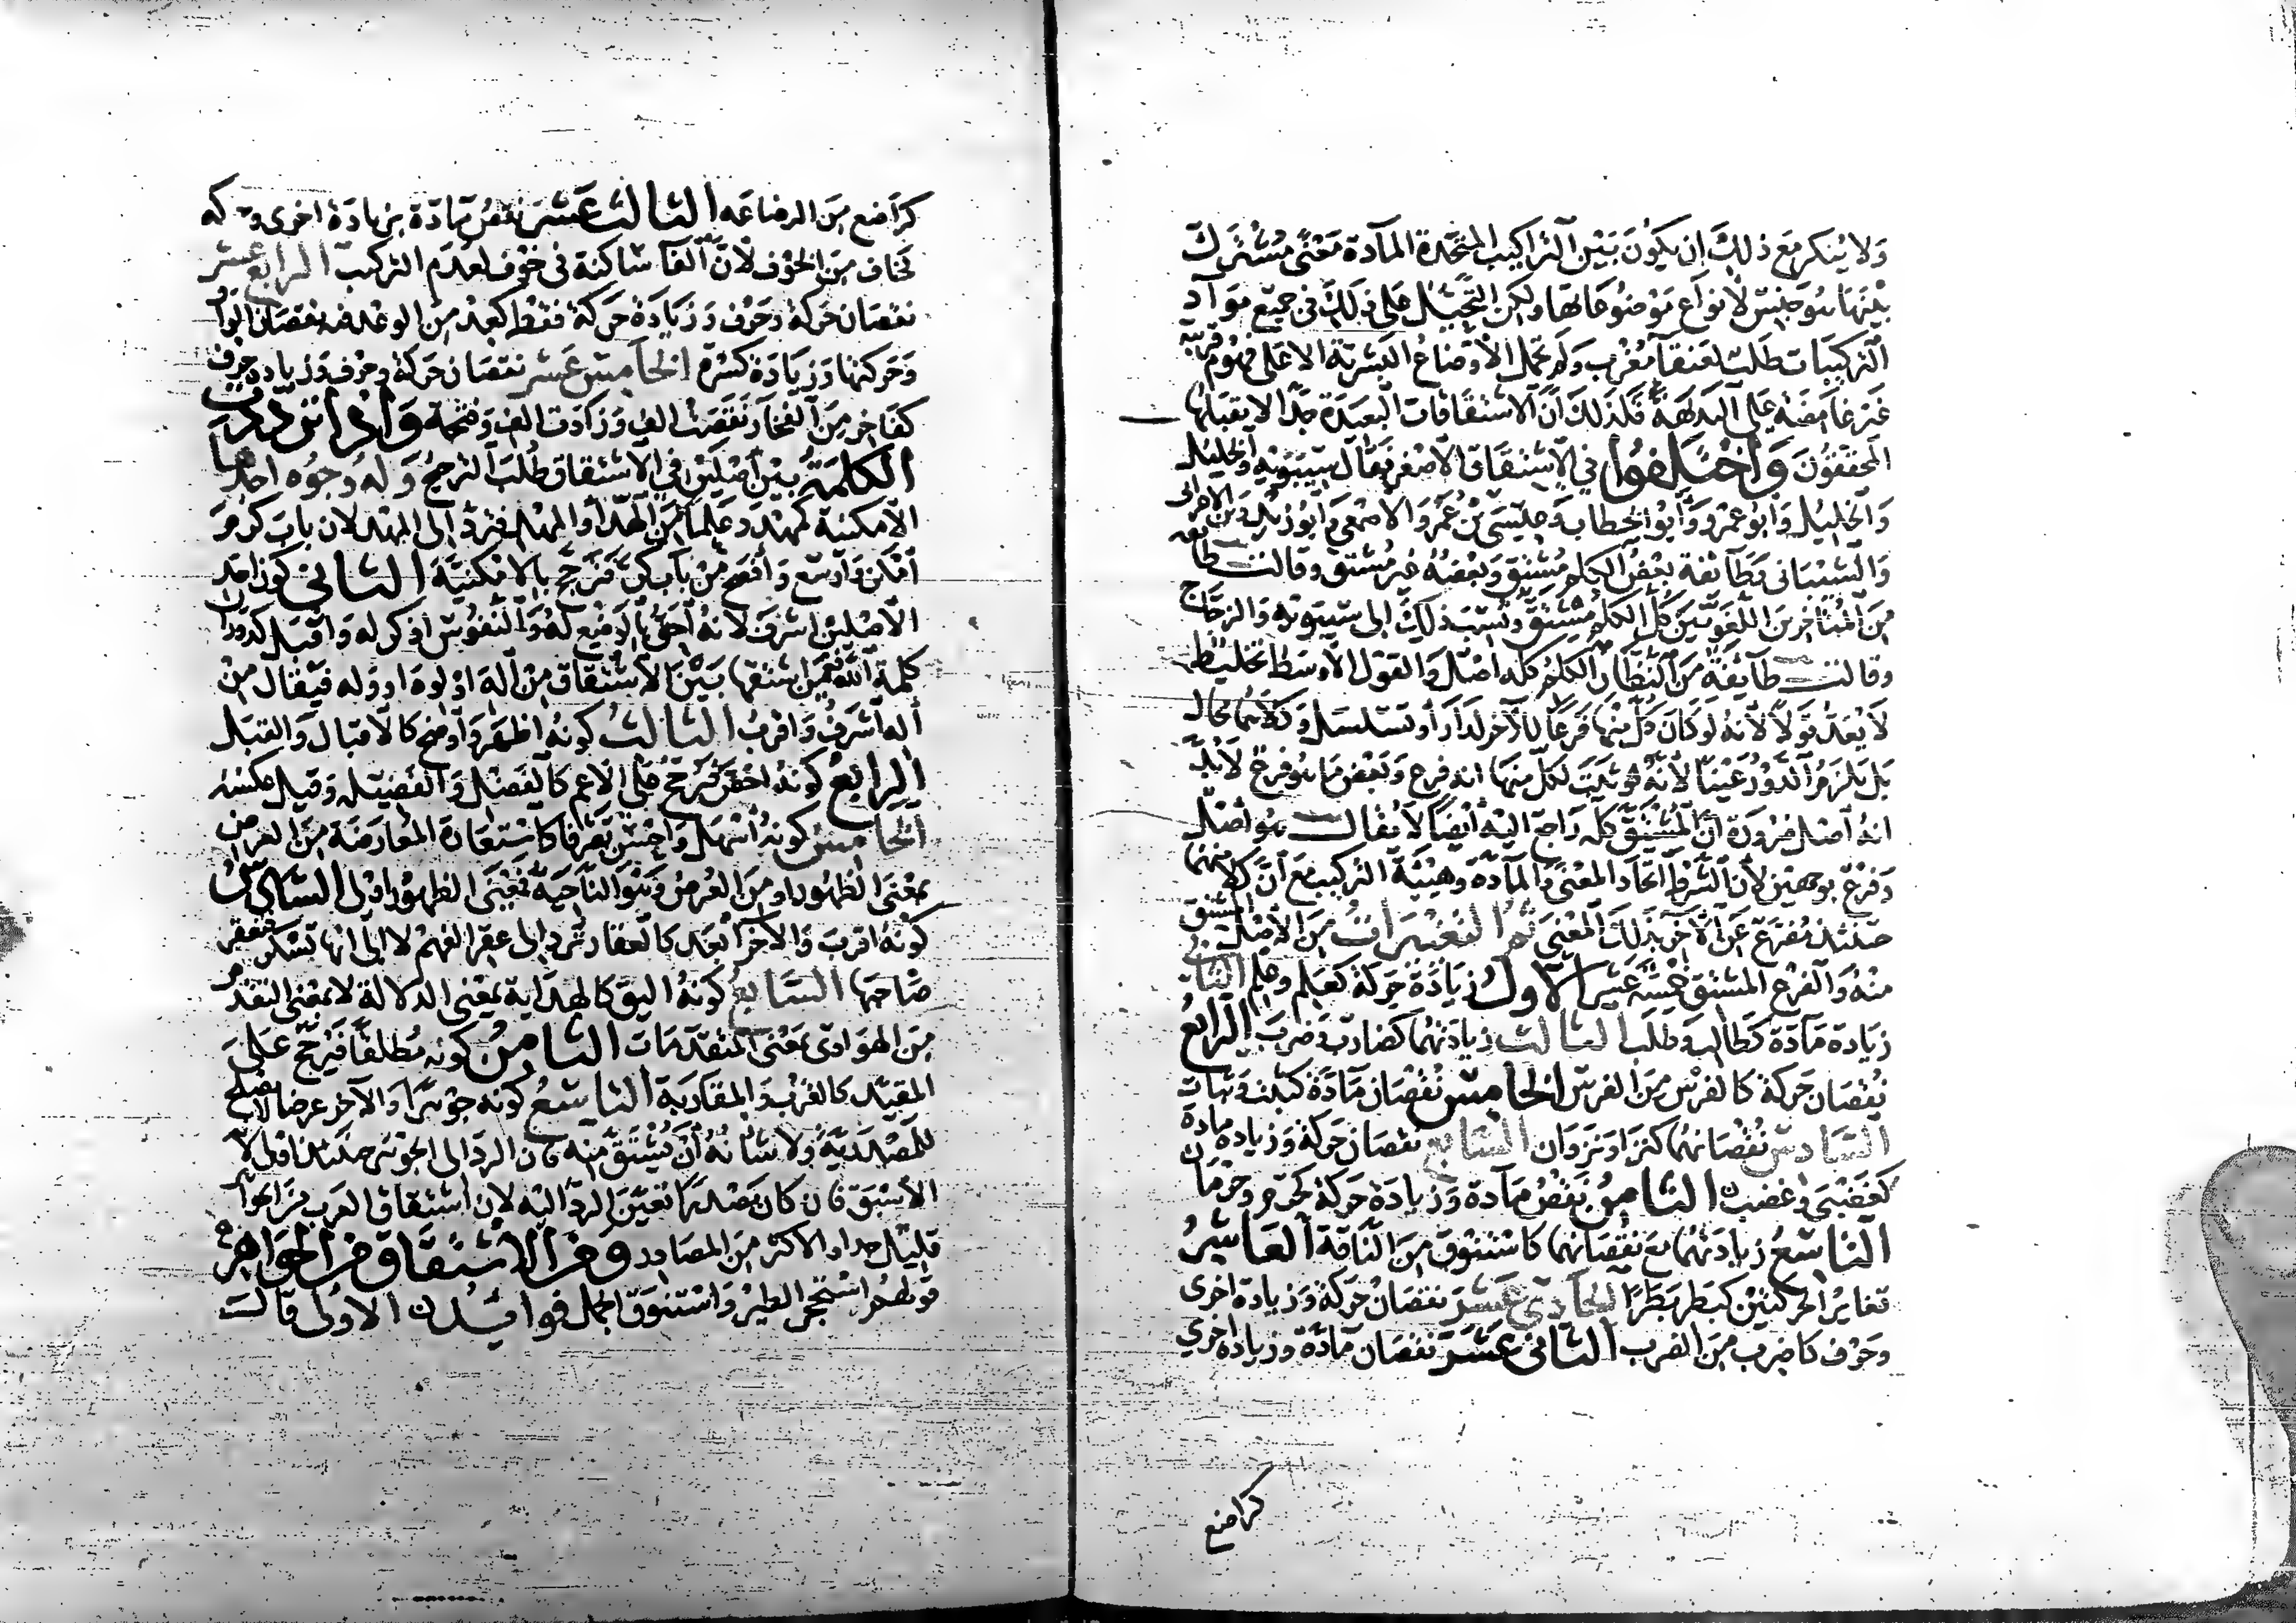 وَلا يُنكر مَعَ ذلِكَ ان يكُونَ بَيْنَ التراكيب المتّحدة المآدة مَعْنًى مُشْتَرَك
بَيْنَهَا هُوَ جنس لأنواع مَوْضوعَاتها ولكن التّحيّل عَلى ذلِكَ في جميع مَوآد
التركيبات طَلَب لعَنقآ مُغْرِب وَلَم تحمل الأوضاع البَشريّة الا عَلى فهُوم قريبة
غَيْر غامضة عَلى البَدَاهَة فَلذلِكَ انّ الاشتقاقات البَعيدَة جدّا لا يقبَلها
المحققُونَ وَاختلفُوا في الاشتقاق الأصغر فقال سيبَويْه وَالخليل
وَالخليْل وَابُو عَمْرو وَأبُو الخطاب وَعيسَى بْن عُمَر وَالاصْمَعي وَابُو زيْد وابن الاعرابى
وَالشيْبَانى وَطآئفة بَعْضُ الكلم مُشتق وَبَعضُهُ غير مُشتق وقالت طائفة
مِنَ المُتأخرين اللغَويّينَ كلّ الكلم مُشتق ونُسبَ ذلِكَ إلى سيبَوَيْه وَالزجاج
وقالت طآئفة مِنَ النظار الكلم كله اصْل وَالقول الأوسَط تخليط
لا يُعَدّ قولاً لانهُ لو كانَ كل منها فَرعًا للآخر لدَار أو تسَلسَل وَكلاهُما محَال
بَل يَلزَم الدّور عَيْنًا لأنهُ يثبت لكل منها انه فرع وَبعض مَا هُو فرع لابُدّ
انهُ أصْل ضرورة انّ المُشتق كله رَاجع اليْه أيْضًا لا يُقالُ هُو اصْل
وَفرع بوجهَين لأن الشرط اتحَاد المعْنَى وَالمآدة وهيئة التركيب مَعَ انّ كلا منهما
حينئذ مُفرّع عَن الآخر بذلِكَ المَعْنى ثمّ التغييرات مِنَ الأصْل المشتق
منهُ وَالفَرع المُشتق خمسَة عَشر الأول زيَادة حركة كعَلِم وعِلم الثاني
زيَادة مَآدة كطَالب وَطلَب الثالث زيادتهُما كضارب وَضرب الرابعُ
نُقصَان حَركة كالفَرْس مِنَ الفرس الخامس نُقْصَان مَآدة كثبت وثبات
السّادس نُقْصانهُما كنزا ونَزوَان السّابع نقصَان حركة وَزيادة مادة
كغضبَى وغضب الثامنُ نَقصُ مَآدة وَزيادَة حركة كحرم وحرمان
التاسعُ زيادتهُما مَعَ نقصَانهما كاستنوقَ مِنَ النّاقة العَاشِرُ
تغايُر الحركتين كبَطر بَطرًا الحادي عَشرَ نقصَانُ حَركة وَزيادة اخرى
وَحرف كاضرب مِنَ الضرب الثاني عَشرَ نقصَان مَآدّة وزيادة اخرى
كراضع
كرَاضع مِنَ الرضاعَه الثالث عَشرَ نقصُ مَادّة بزيادَة اخرى وحركه
كخاف مِنَ الخوْف لأنّ الفآ ساكنة في خوْف لعدَم التركيب الرابع عشر
نقصَان حَركة وحَرْف وَزيَادة حَركة فقط كعِدْ مِن الوعْد فيه نقصَان الواو
وَحركتها وَزيادَة كسْرة الخامسَ عَشر نقصَان حركة وحرف وَزيادة حرف
كفاخر مِنَ الفخار نقصَت الف وَزادَت الف وَفتحة وَاذا تردّدت
الكلمَةُ بَيْن أصْلَيْن في الاشتقاق طُلبَ الترجيح وَله وجُوه احدها
الأمكنية كمهْدَد عَلمًا مِنَ الهَدّ أو المَهْد فيُردّ إلى المهْد لان بابَ كرم
أمكن وَأوسَع وَأفصَح مِنْ بابِ كرّ فيرجّح بالأمكنيّة الثاني كون احد
الأصْلين اشرف لأنهُ أحَق بالوضْع لهُ وَالنّفوُس اذكر له وَاقبَل كدورَان
كلمَة الله فيمَن اشتقها بَيْنَ الاشتقاق مِنْ أله او لوه او وله فيقال منْ
أله أشرَف وَاقرب الثالث كونه اظهَر وَأوضح كالاقبال وَالقبَل
الرابع كونهُ اخصّ فيُرجّح عَلى الأعم كالفَضْل وَالفَضيلَه وقيل عكسُه
الخامس كونهُ أسْهَل وَاحْسَن تصَرّفا كاشتقاق المعارضَة مِنَ العرض
بمَعْنَى الظهور او مِنَ العُرض وَهُوَ النّاحيَة فمَعْنَى الظهور اولى السّادس
كونهُ اقربَ وَالآخر أبْعَد كالعقار يُردّ إلى عقر الفهْم لا إلى انها تُسْكر فتعقر
صَاحبَها السّابعُ كونهُ اليَق كالهدَاية بمَعْنَى الدلالة لا بمعْنى التقدم
مِن الهَوادى بمَعْنى المتقدّمات الثامنُ كونه مُطلقًا فيُرجّح عَلى
المقيّد كالقُرْب وَالمقاربَة التاسعُ كونه جَوهرًا والآخر عرضا لا يصلح
للمَصْدَريّة وَلا شأنهُ أنْ يُشْتق مِنْه فان الردّ إلى الجَوْهَر حينَئذ اولى لأنه
الأسبَق فان كان مَصْدرًا تعيّنَ الردّ اليْه لان اشتقاق العَرب مِنَ الجواهر
قليْل جدا والاكثر مِنَ المصَادر ومن الاشتقاق من الجواهر
قولهُم اسْتحْجرَ الطين وَاستنوَقَ الجمل فوائدُ الاولى قالَت